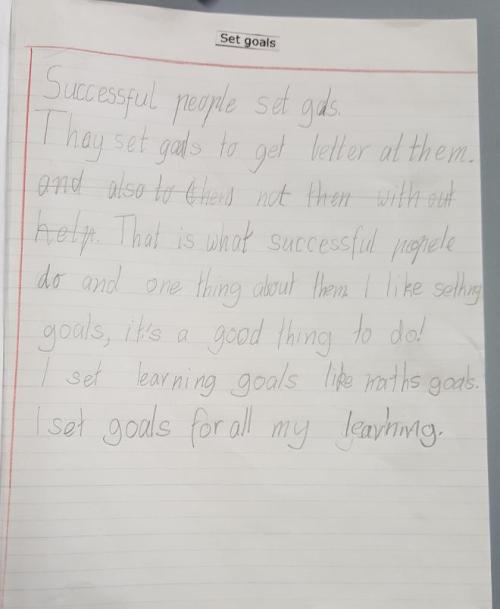 Set goals
Successful people set gals.
They set goals to get better at them.
and also to not then with out
help. That is what successful popele
do and one thing about them I like setting
goals, it's a good thing to do!
I set learning goals like maths goals.
I set goals for all my learning.